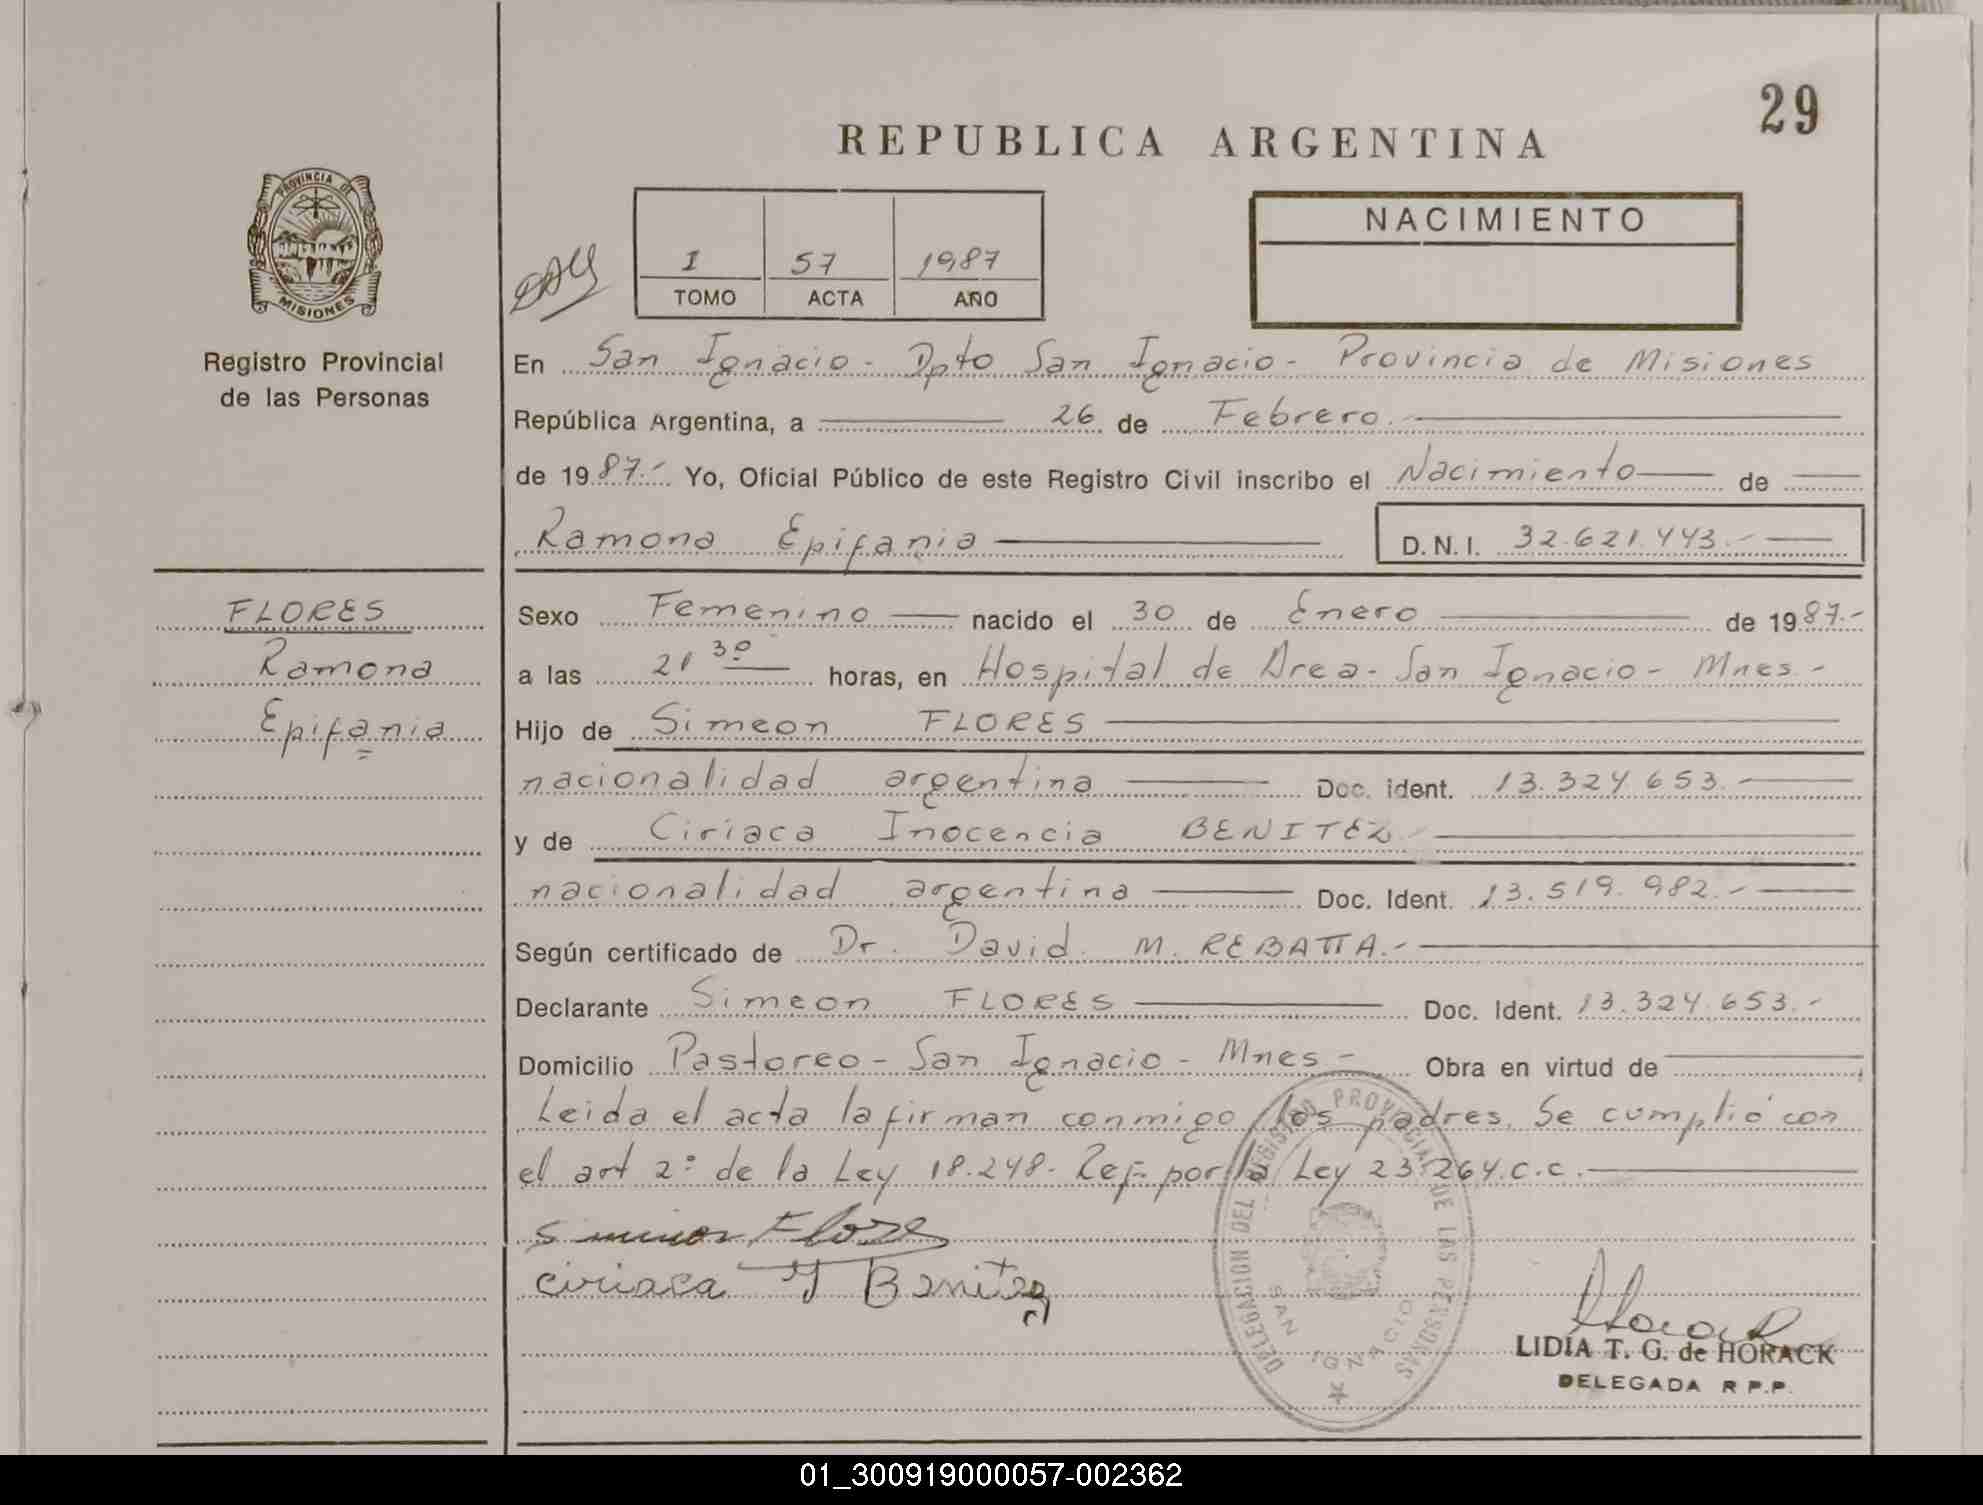 29
REPUBLICA ARGENTINA
PROVINCIA DE
MISIONES
Registro Provincial
de las Personas
NACIMIENTO
I 57 1987
TOMO ACTA AÑO
En San Ignacio - Dpto San Ignacio - Provincia de Misiones
República Argentina, a 26 de Febrero.
de 1987.- Yo, Oficial Público de este Registro Civil inscribo el Nacimiento de
Ramona Epifania D.N.I. 32.621.443.-
FLORES
Ramona
Epifania
Sexo Femenino nacido el 30 de Enero de 1987.-
a las 21 30 horas, en Hospital de Area - San Ignacio - Mnes.-
Hijo de Simeon FLORES
nacionalidad argentina Doc. ident. 13.324.653.-
y de Ciriaca Inocencia BENITEZ.
nacionalidad argentina Doc. Ident. 13.519.982.-
Según certificado de Dr. David M. REBATTA.-
Declarante Simeon FLORES Doc. Ident. 13.324.653.-
Domicilio Pastoreo - San Ignacio - Mnes - Obra en virtud de
Leida el acta la firman conmigo los padres. Se cumplió con
el art 2º de la Ley 18.248. Ref. por la Ley 23.264.c.c.
ciriaca Y Benitez
DELEGACION DEL REGISTRO PROVINCIAL DE LAS PERSONAS
SAN IGNACIO
LIDIA T. G. de HORACK
DELEGADA R P.P.
01_300919000057-002362